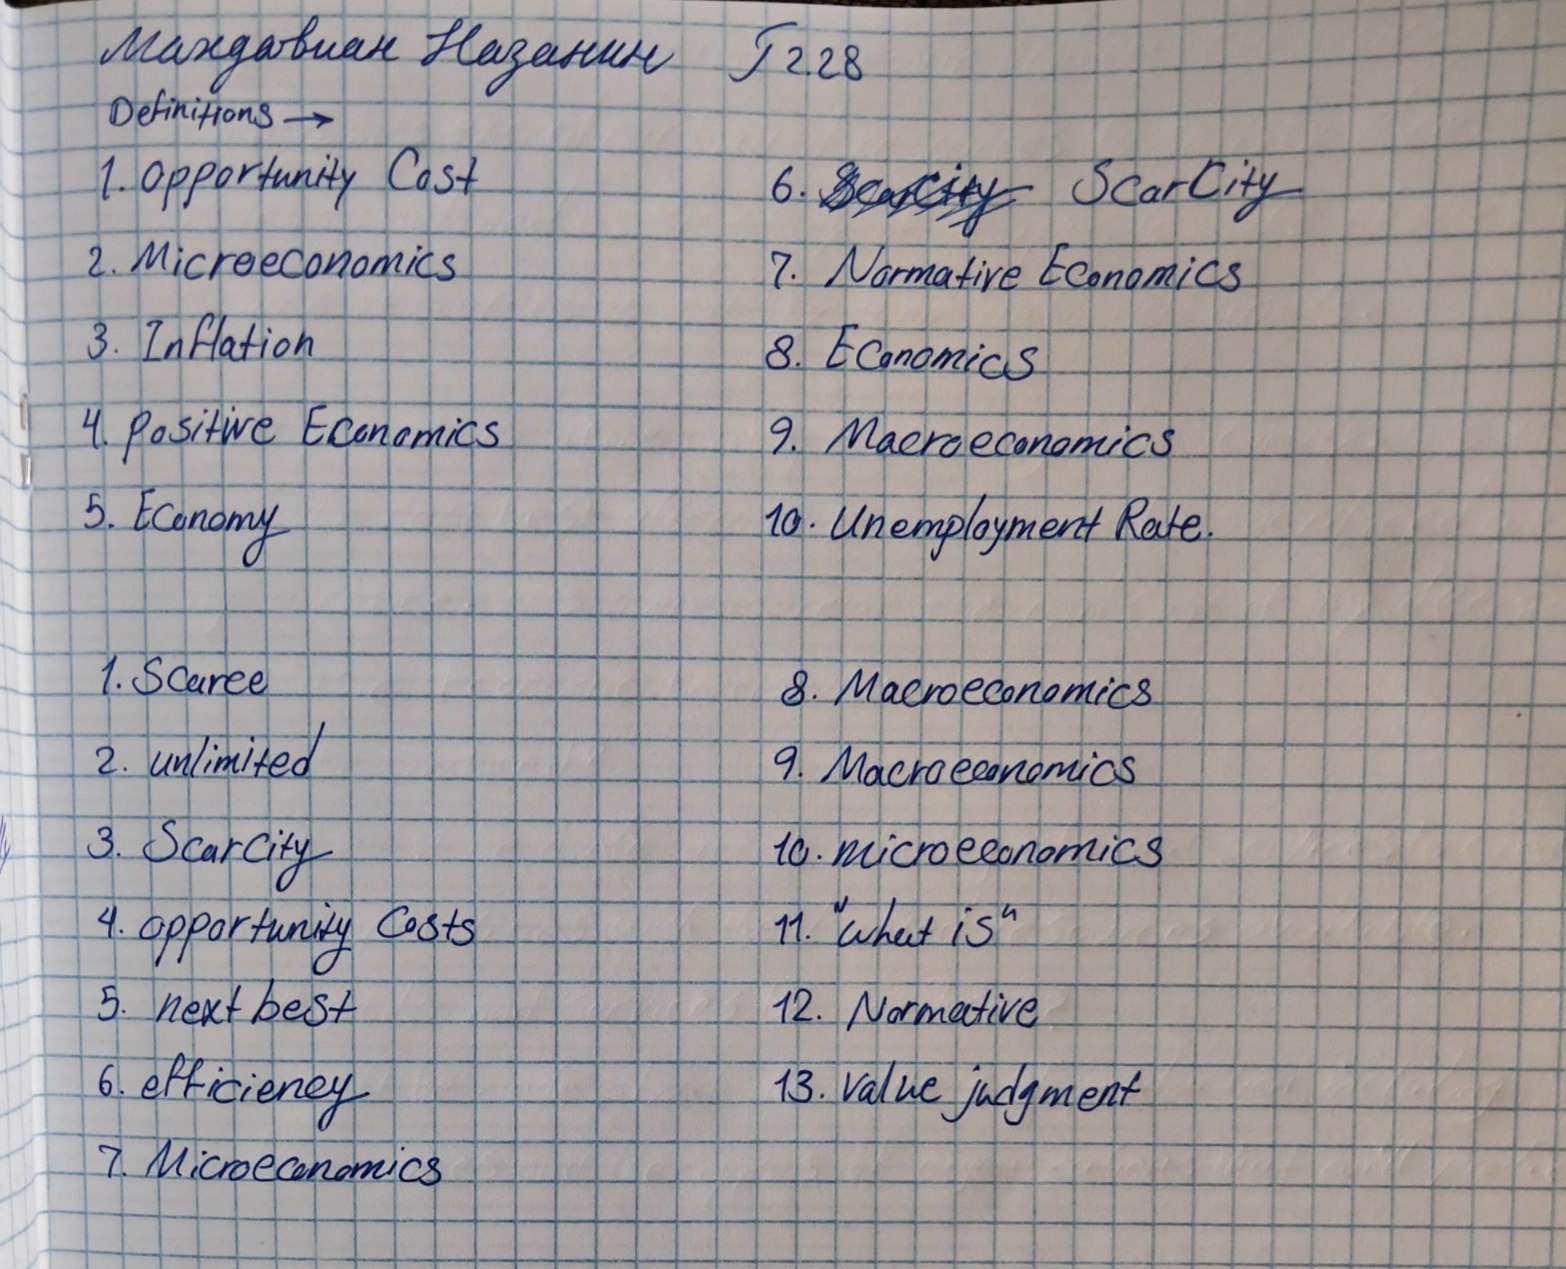 Махдавиан Назанин Г2.28
Definitions →
1. opportunity Cost
2. Microeconomics
3. Inflation
4. positive Economics
5. Economy
6. Scarcity ScarCity
7. Normative Economics
8. Economics
9. Macroeconomics
10. Unemployment Rate.
1. Scarce
2. unlimited
3. ScarCity
4. opportunity Costs
5. next best
6. efficiency
7. Microeconomics
8. Macroeconomics
9. Macroeconomics
10. microeconomics
11. "what is"
12. Normative
13. value judgment